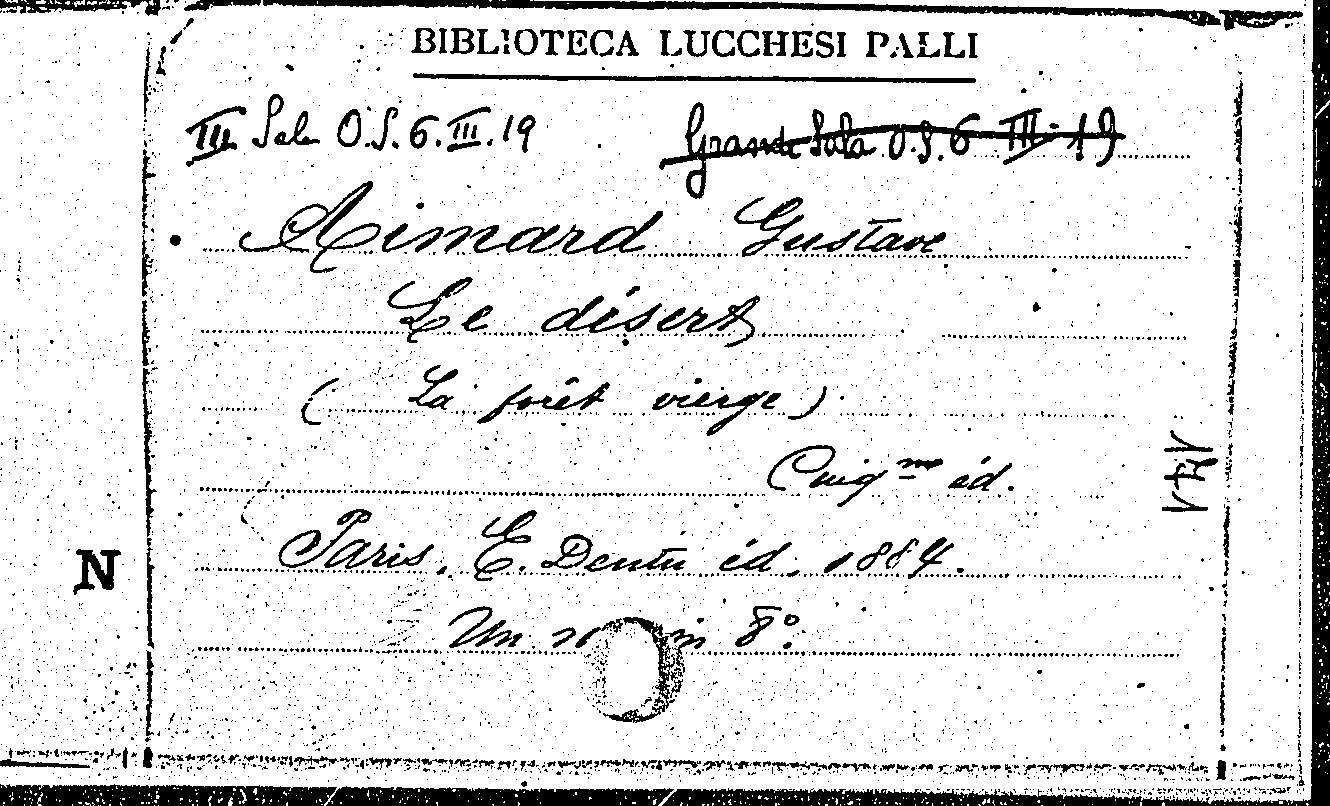 BIBLIOTECA LUCCHESI PALLI
III Sala O.S.6.III.19
Grande Sala O.S.6 III. 19
Aimard Gustave
Le désert
(La forêt vierge)
Cinqme éd.
Paris. E. Dentu éd. 1884.
N
Un in 8º.